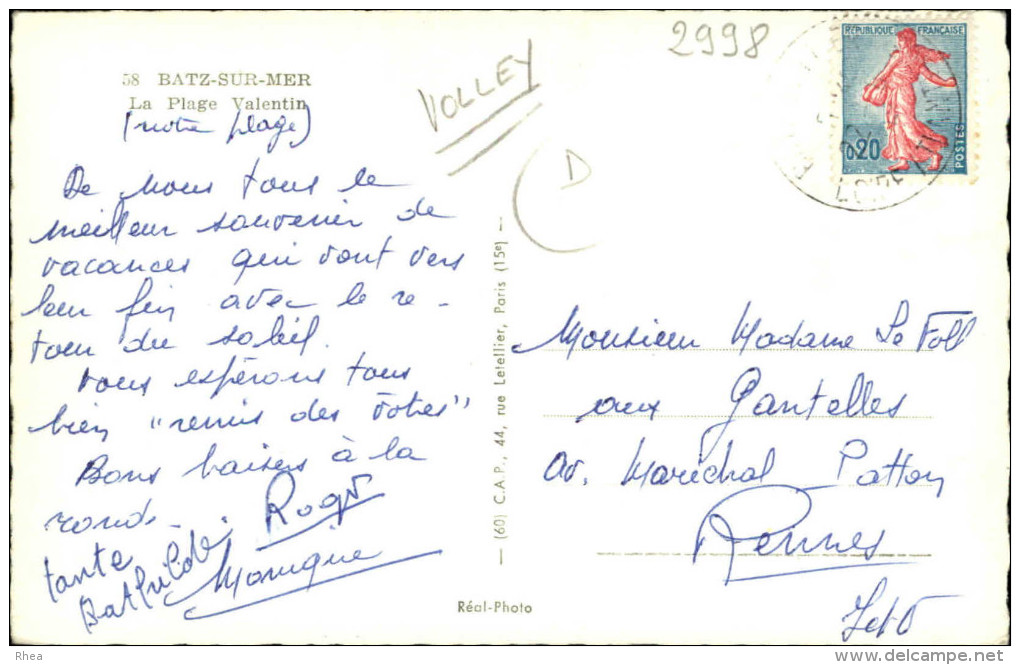 2998
58 BATZ-SUR-MER
La Plage Valentin
(notre plage)
VOLLEY
D
RÉPUBLIQUE FRANÇAISE
0,20
POSTES
De nous tous le
meilleur souvenir de
vacances qui vont vers
leur fin avec le re-
tour du soleil.
Vous espérons tous
bien "remis des vôtres"
Bons baisers à la
ronde.
Roger
tante
Bathilde
Monique
— (60) C.A.P., 44, rue Letellier, Paris (15e) —
Réal-Photo
Monsieur Madame Le Foll
aux Gantelles
av. Maréchal Patton
Rennes
I et V
Rhea
delcampe.net